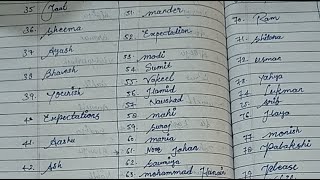 35. Jaal
36. Sheema
37. Ayash
38. Bhavesh
39. Yourish
40 Expectations
41. Aasha
42. Ash
51. mander
52. Expectation
53. modi
54. Sumit
55. Vakeel
56. Hamid
57. Naushad
58. mahi
59. Suraj
60. maria
61. Noor Jahan
62. Saumiya
63. mohammad
70. Ram
71. Shilona
72. Usman
73. Yahya
74. Lukman
75. Arif
76. Haya
77. monish
78. Palakshi
79. Please